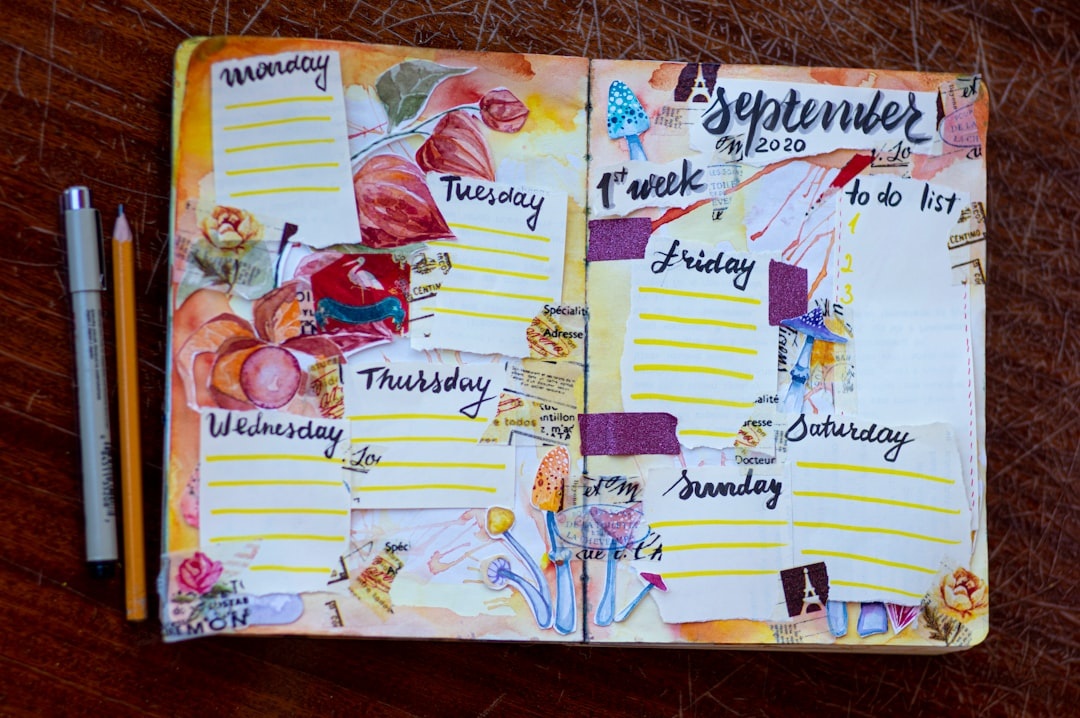 Monday
Tuesday
CENTIN
Spécialit
Adresse
Thursday
Wednesday
Spéc
MON
September
2020
1st week
to do list
1
2
3
CENTIMO
Friday
Docteur
Saturday
Sunday